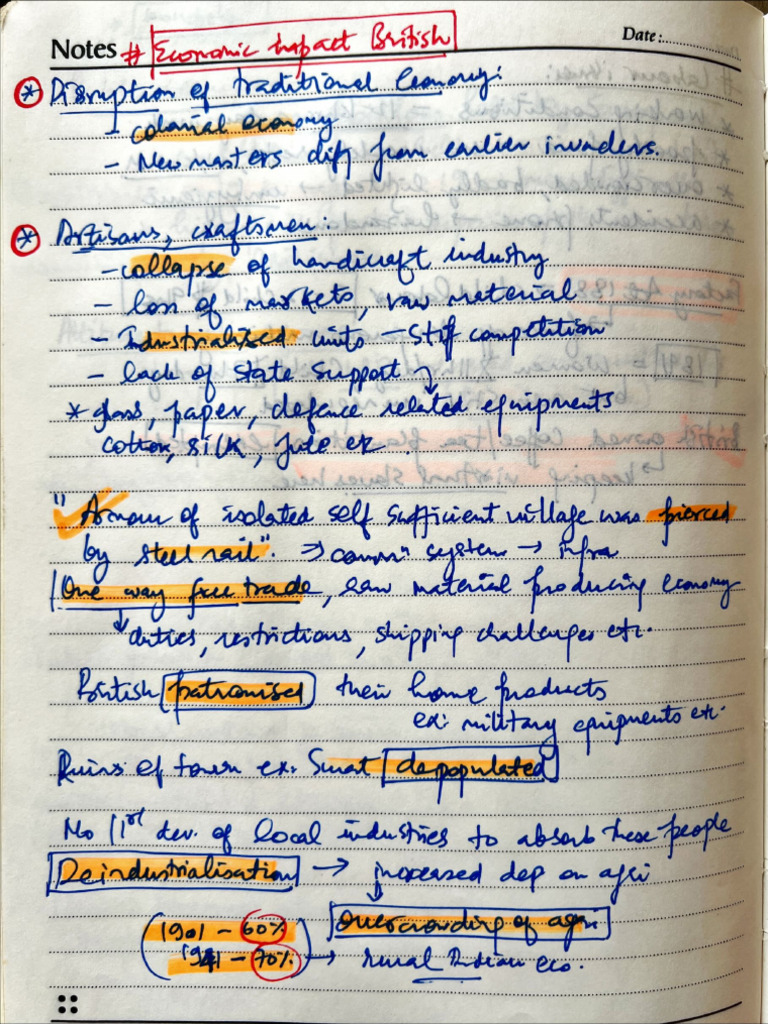 Notes # Economic Impact British
Date:
* Disruption of traditional Economy:
- colonial economy
- New masters diff from earlier invaders.
* Artisans, craftsmen:
- collapse of handicraft industry
- loss of markets, raw material
- Industrialized units - Stiff competition
- lack of State Support
* glass, paper, defence related equipments
cotton, silk, Jute etc.
"Armour of isolated self sufficient village was pierced
by steel rail". ⇒ commn system → infra
One way free trade, raw material producing economy
↳ duties, restrictions, shipping challenges etc.
British patronised their home products
ex: military equipments etc.
Ruins of town ex. Surat depopulated
No / dev. of local industries to absorb these people
Deindustrialisation → increased dep on agri
1901 - 60% Overcrowding of agri
1941 - 70% → rural Indian eco.